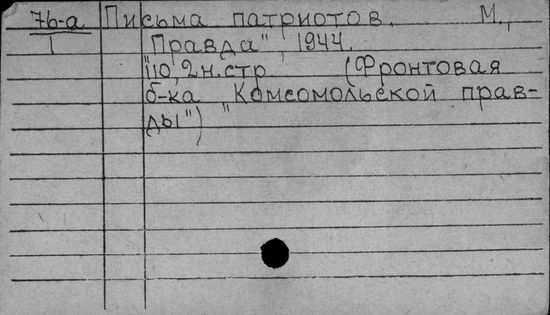 76-а Письма патриотов. М.,
1 "Правда", 1944.
110, 2 н. стр. (Фронтовая
б-ка "Комсомольской прав-
ды")